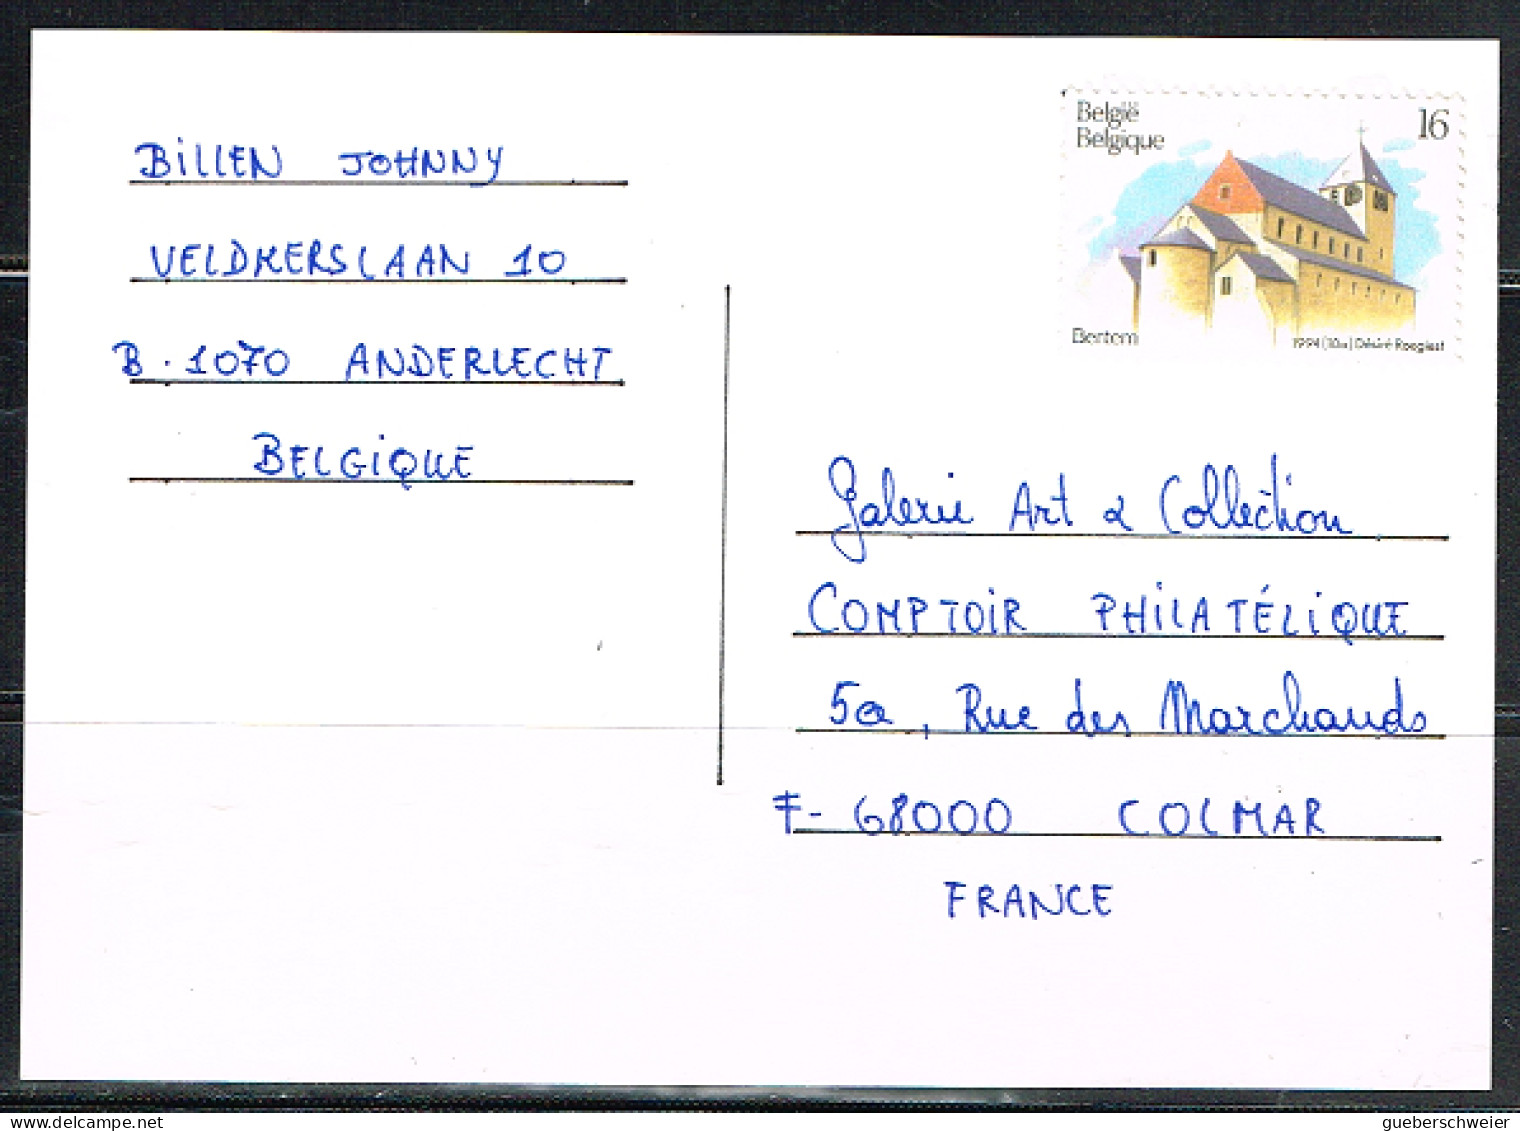 BILLEN JOHNNY
VELDKERSLAAN 10
B.1070 ANDERLECHT
BELGIQUE
België
Belgique
16
Bertem
1994 (10a) Désiré Roegiest
Galerie Art & Collection
COMPTOIR PHILATÉLIQUE
5a, Rue des Marchands
F-68000 COLMAR
FRANCE
delcampe.net
gueberschweier